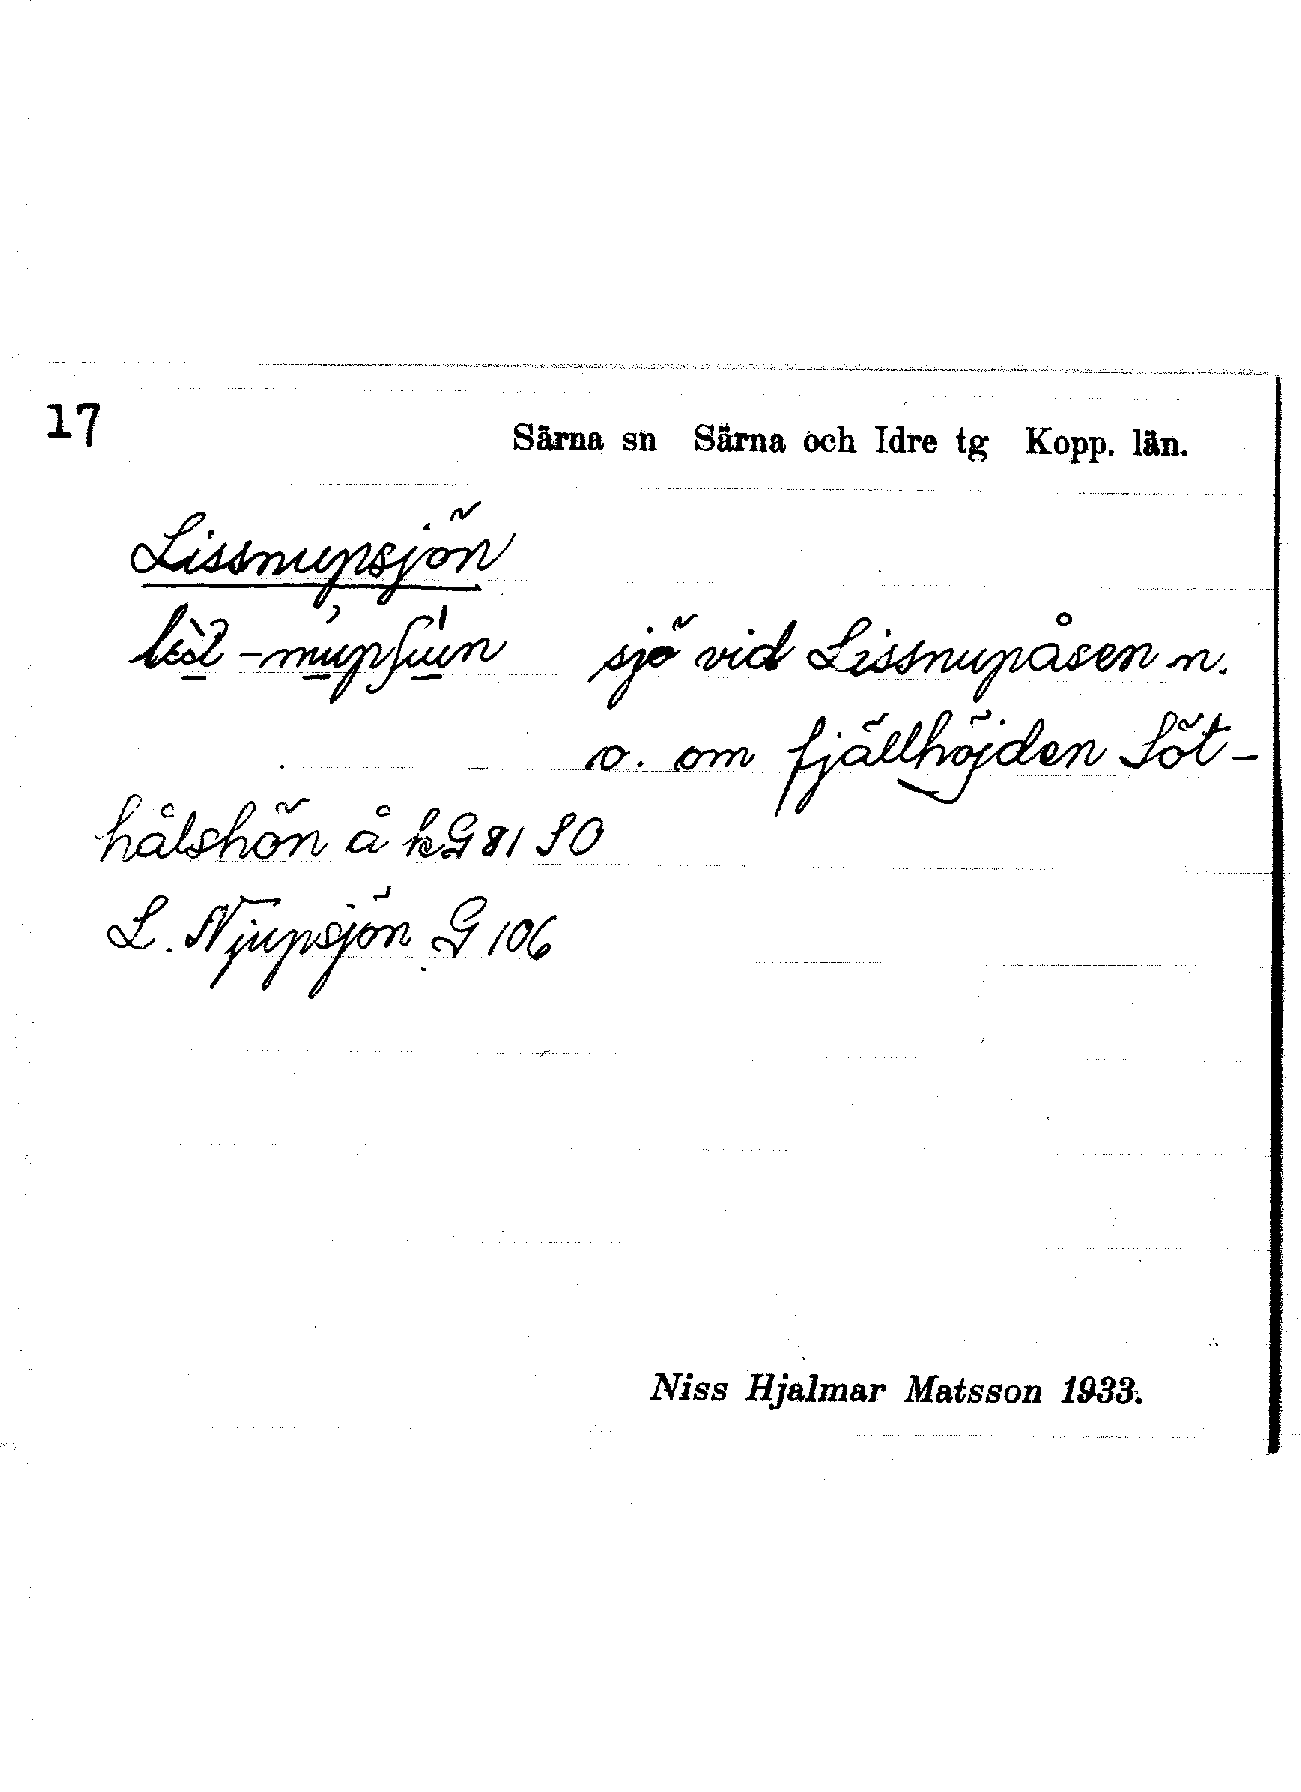 17
Särna sn Särna och Idre tg Kopp. län.
Lissnupsjön
sjö vid Lissnupåsen n.
o. om fjällhöjden Söt-
hålshön å kG 81 SO
L. Njupsjön G 106
Niss Hjalmar Matsson 1933.